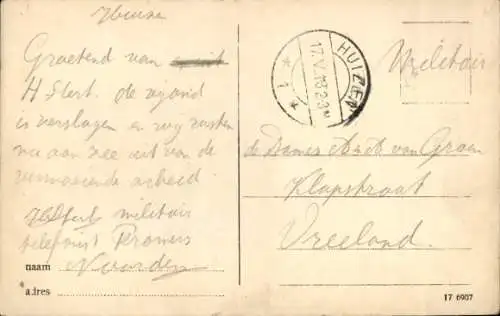 Groetend van
H. Slert. de vijand
is verslagen en wij rusten
nu aan zee uit van de
vermoeiende arbeid
militair
telefonist
naam Naarden
adres
HUIZEN
17.V.13 23N
1
Militair
de Dames A en A van Groen
Klapstraat
Vreeland.
17 6907